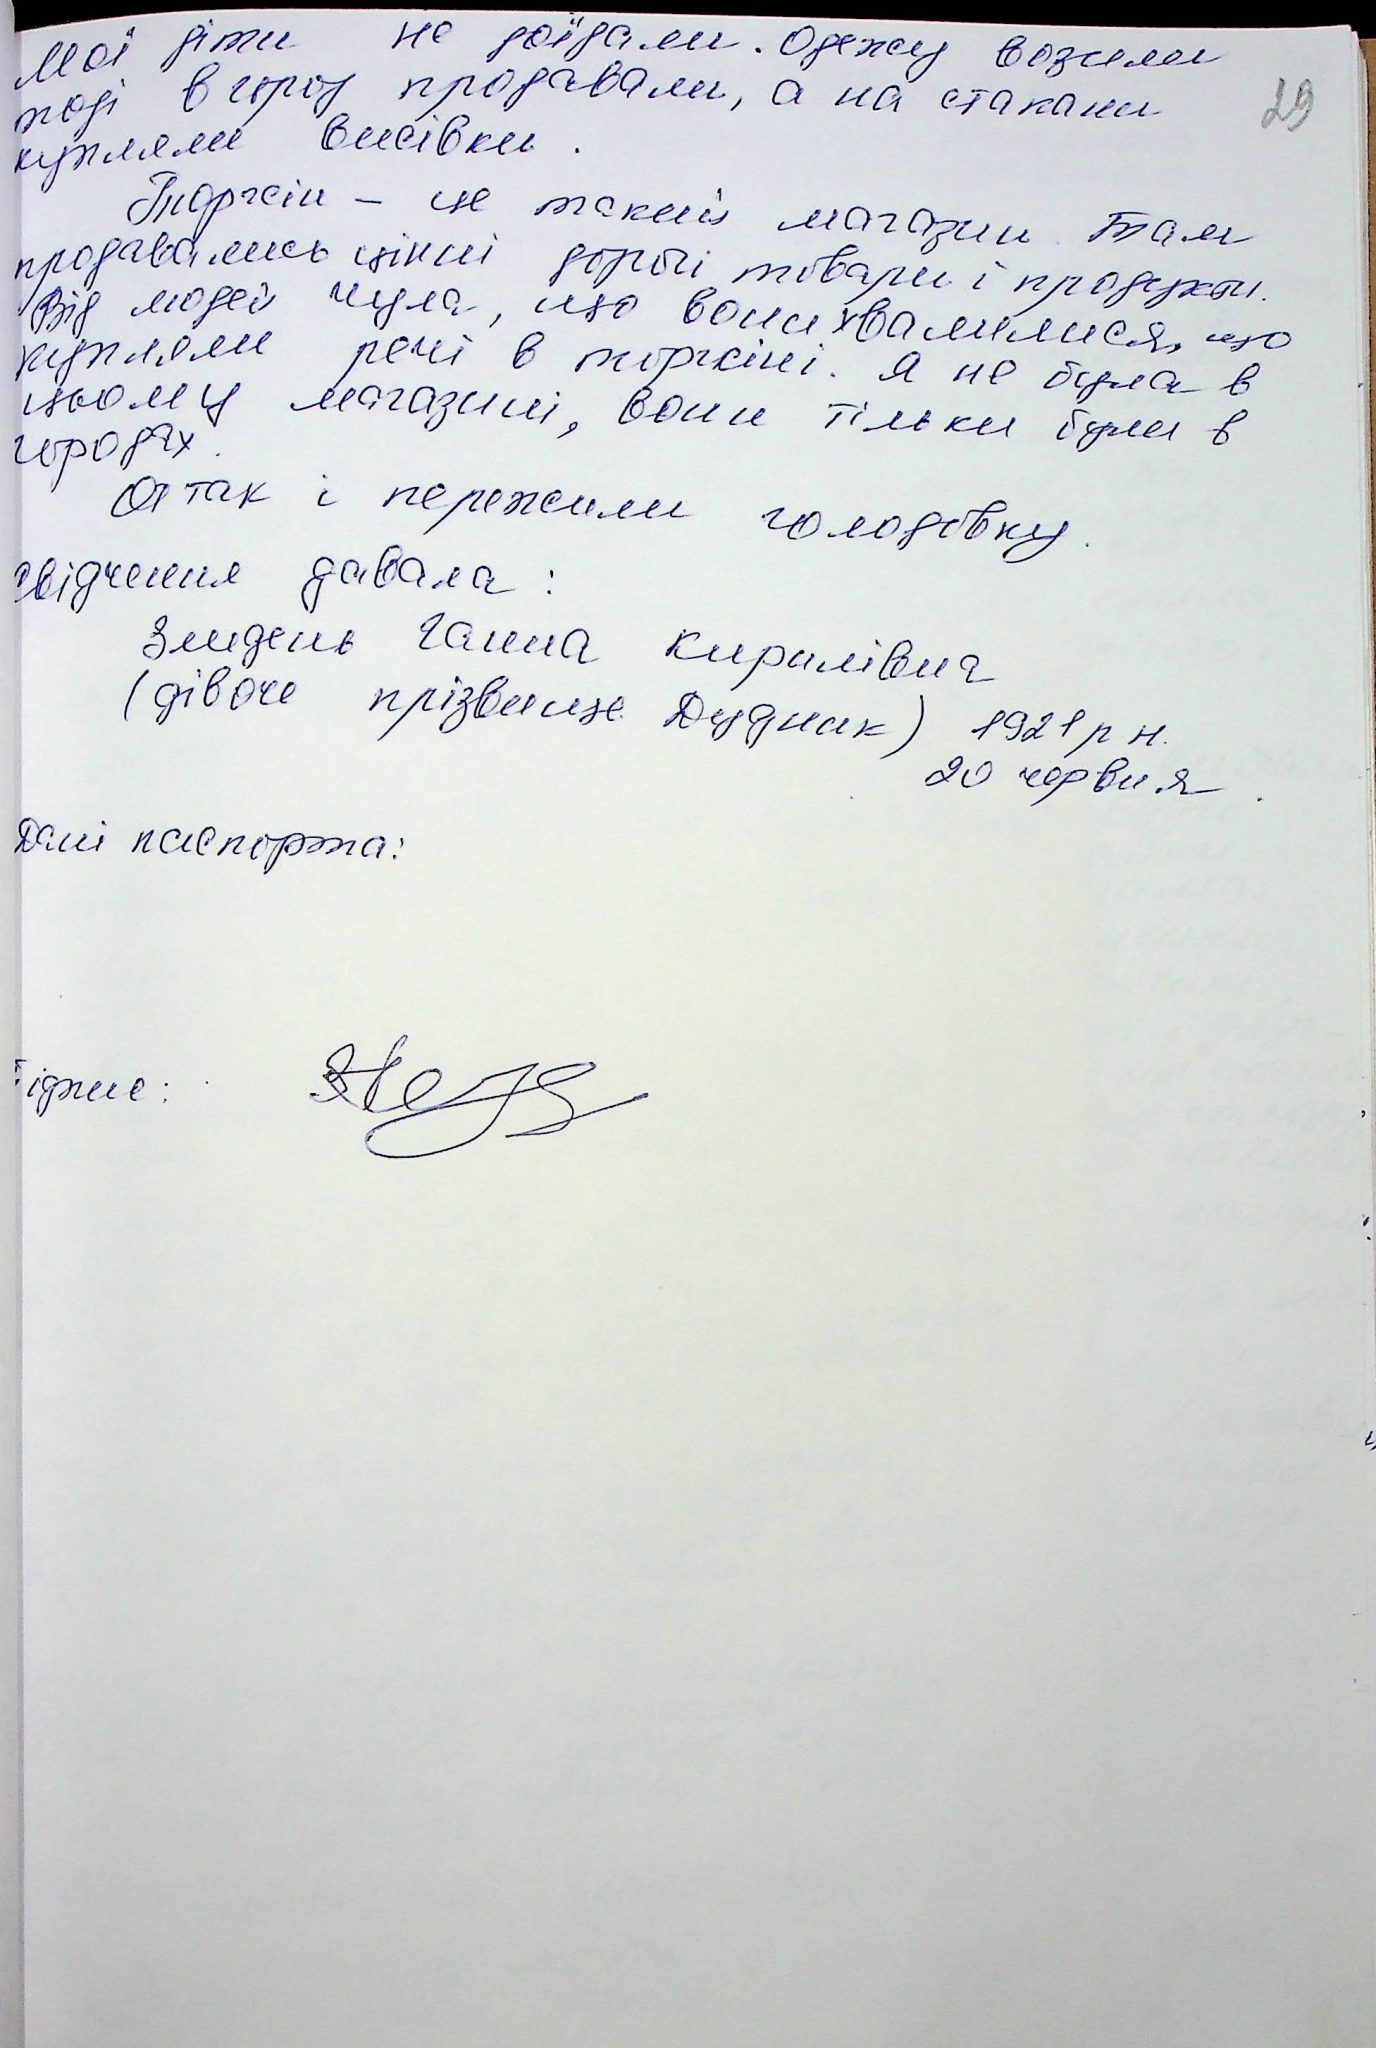 Мої діти не доїдали. Одежу возили
тоді в город продавали, а на стакани
купляли висівки.
29
Торгсін – це такий магазин. Там
продавались цінні дорогі товари і продукти.
Від людей чула, що вони хвалилися, що
купляли речі в торгсіні. Я не була в
цьому магазині, вони тільки були в
городах.
Отак і пережили голодовку.
свідчення давала:
Змидень Ганна Кирилівна
(дівоче прізвище Дудник) 1921 р н.
20 червня.
Дані паспорта:
ідпис: